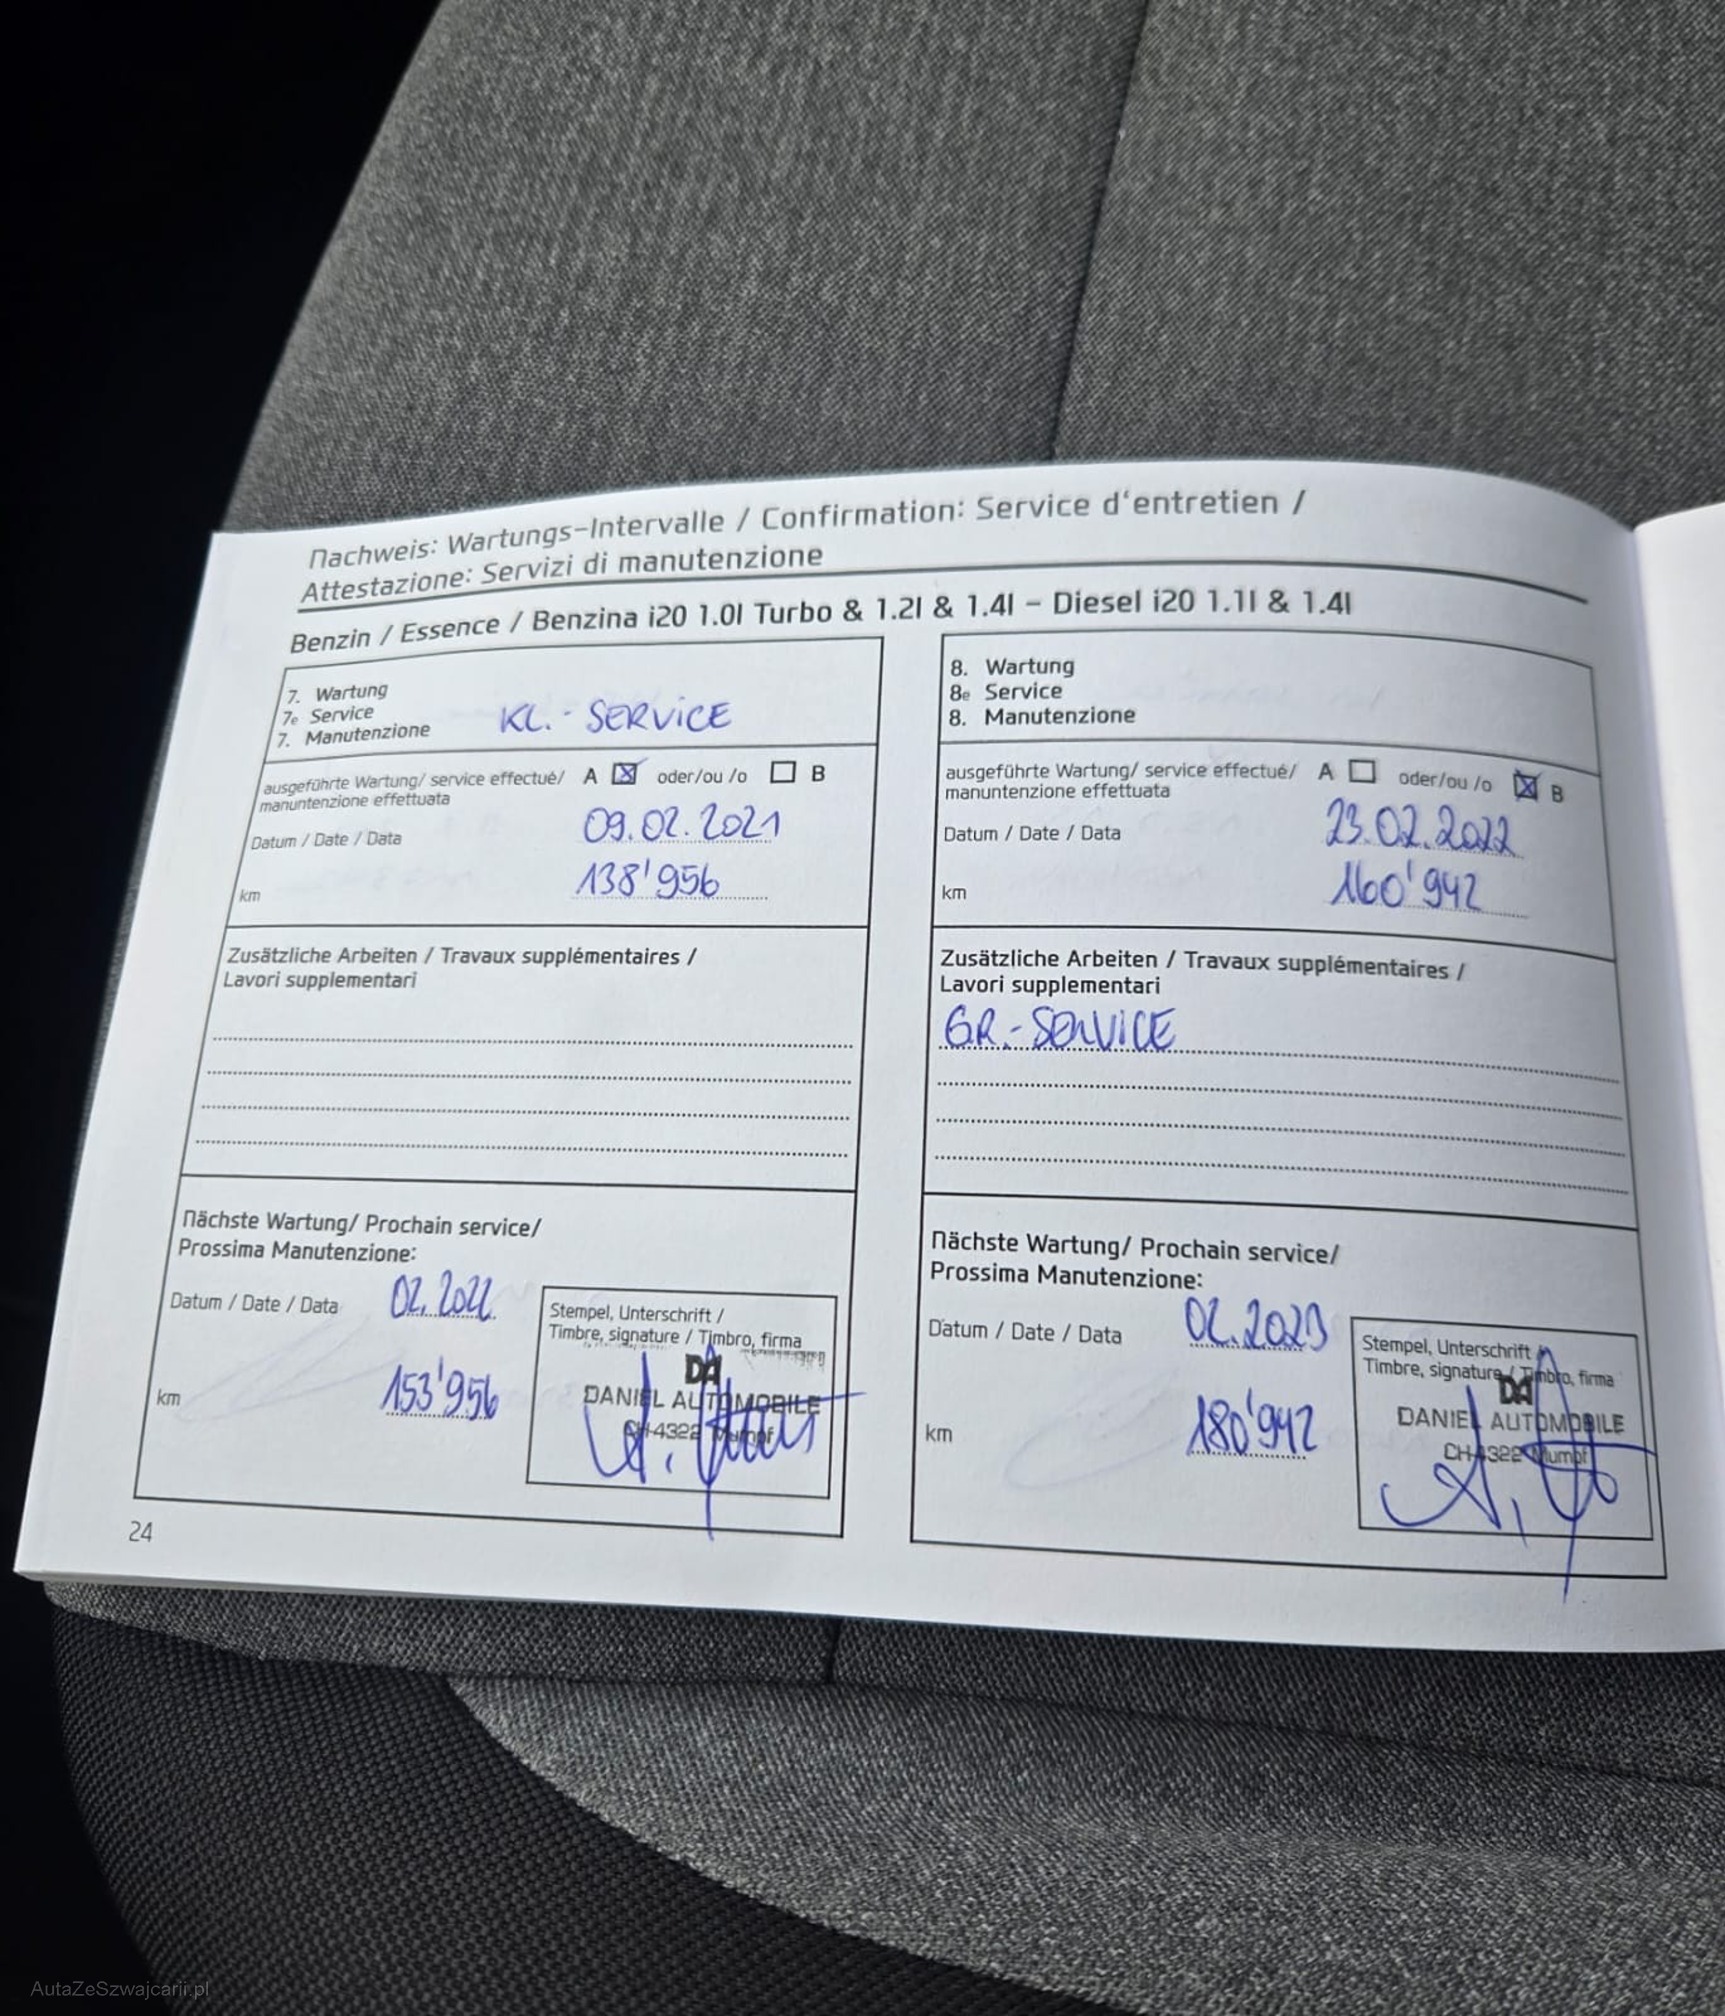 Nachweis: Wartungs-Intervalle / Confirmation: Service d'entretien /
Attestazione: Servizi di manutenzione
Benzin / Essence / Benzina i20 1.0l Turbo & 1.2l & 1.4l – Diesel i20 1.1l & 1.4l
7. Wartung
7e Service
7. Manutenzione
KL.- SERVICE
ausgeführte Wartung/ service effectué/ A ☒ oder/ou /o ☐ B
manuntenzione effettuata
Datum / Date / Data 09.02.2021
km 138'956
Zusätzliche Arbeiten / Travaux supplémentaires /
Lavori supplementari
Nächste Wartung/ Prochain service/
Prossima Manutenzione:
Datum / Date / Data 02.2022
km 153'956
Stempel, Unterschrift /
Timbre, signature / Timbro, firma
DA
DANIEL AUTOMOBILE
CH-4322 Mumpf
24
8. Wartung
8e Service
8. Manutenzione
ausgeführte Wartung/ service effectué/ A ☐ oder/ou /o ☒ B
manuntenzione effettuata
Datum / Date / Data 23.02.2022
km 160'942
Zusätzliche Arbeiten / Travaux supplémentaires /
Lavori supplementari
GR.-SERVICE
Nächste Wartung/ Prochain service/
Prossima Manutenzione:
Datum / Date / Data 02.2023
km 180'942
Stempel, Unterschrift /
Timbre, signature / Timbro, firma
DA
DANIEL AUTOMOBILE
CH-4322 Mumpf
AutaZeSzwajcarii.pl